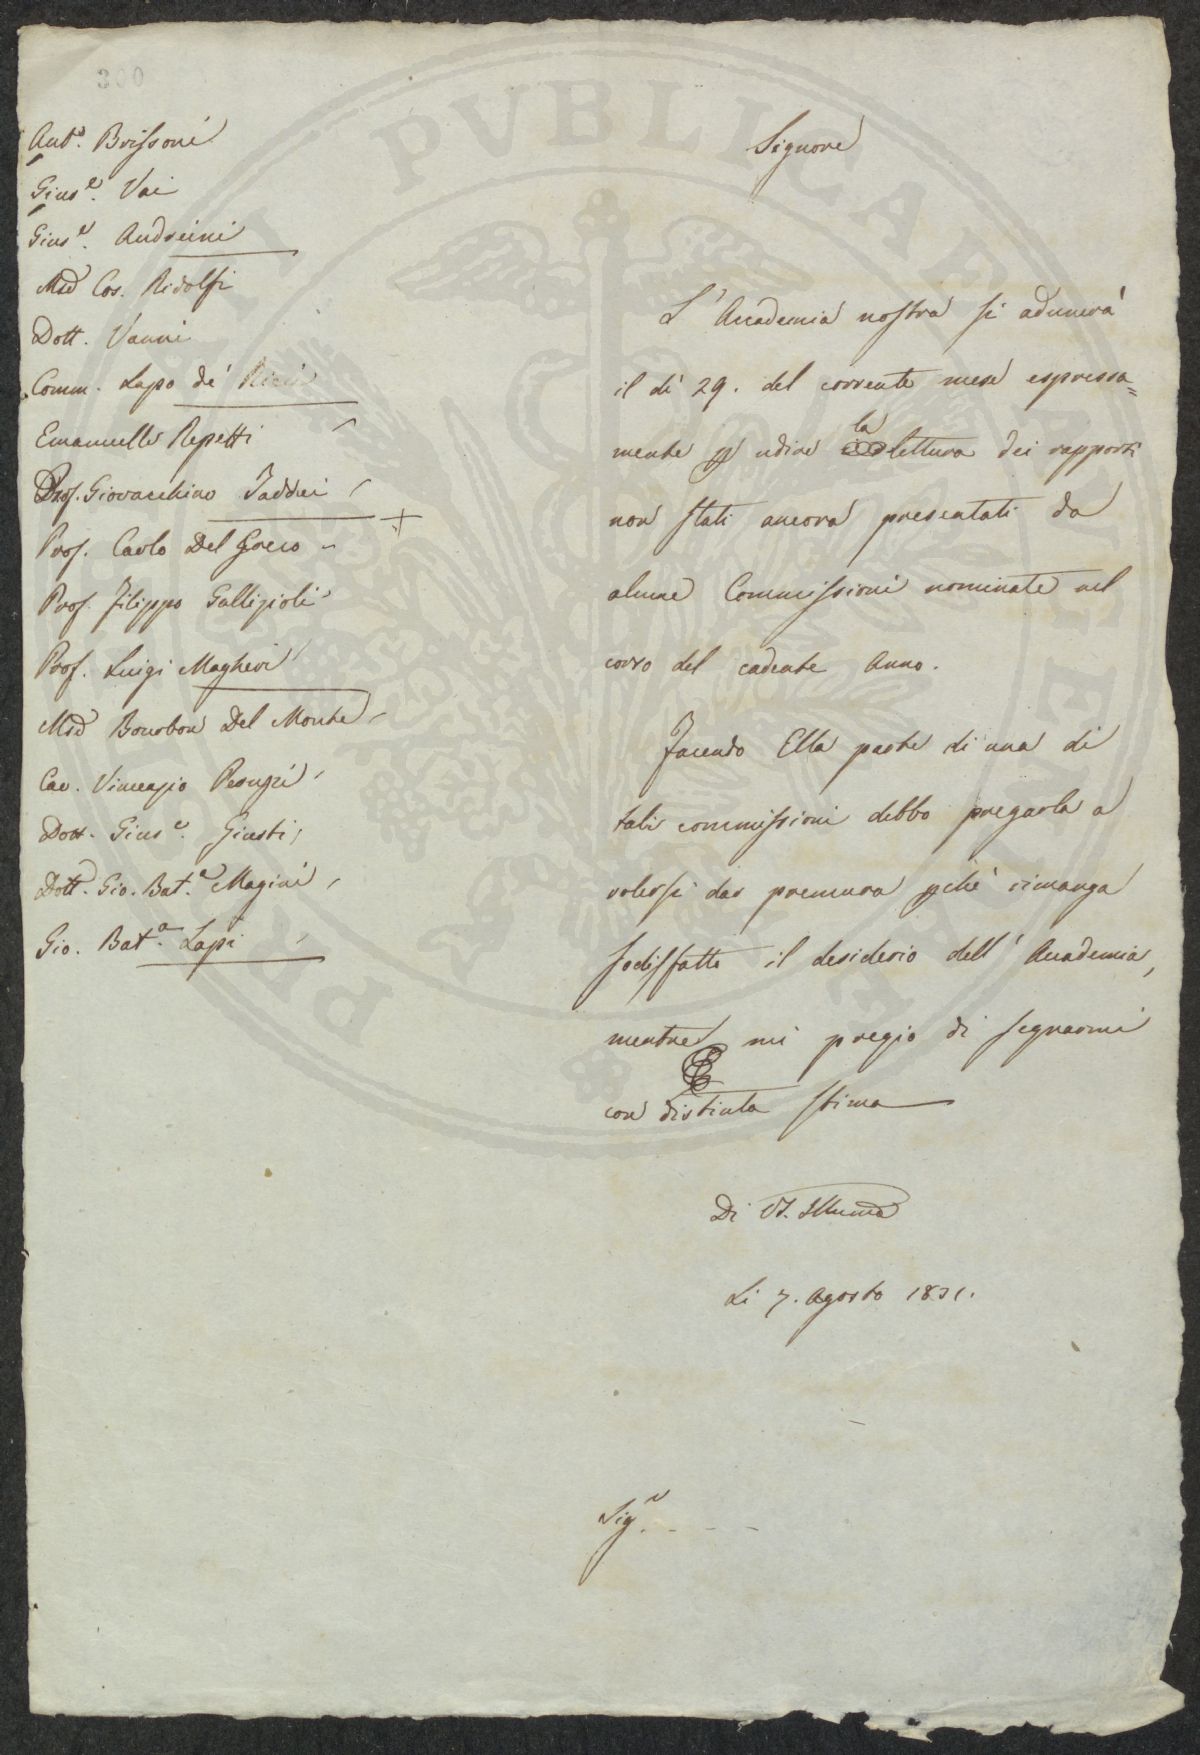 300
Ant.º Brissoni
Gius.e Vai
Gius.e Andreini
Cos. Ridolfi
Dott. Vanni
Comm. Lapo de' Ricci
Emanuelle Repetti
Prof. Giovacchino Taddei
Prof. Carlo Del Greco
Prof. Filippo Gallizioli
Prof. Luigi Magheri
Bourbon Del Monte
Cav. Vincenzio Peruzzi
Dott. Gius.e Giusti
Dott. Gio. Bat.a Magini
Gio. Bat.a Lapi
Signore
L'Accademia nostra si adunerà
il dì 29. del corrente mese espressa=
mente p udire la lettura dei rapporti
non stati ancora presentati da
alcune Commissioni nominate nel
corso del cadente Anno.
Facendo Ella parte di una di
tali commissioni debbo pregarla a
volersi dar premura pchè rimanga
sodisfatto il desiderio dell'Accademia,
mentre mi pregio di segnarmi
con distinta stima
Di VS. Illuma
Li 7. Agosto 1831.
Sig.e - - - -
PVBLICAE